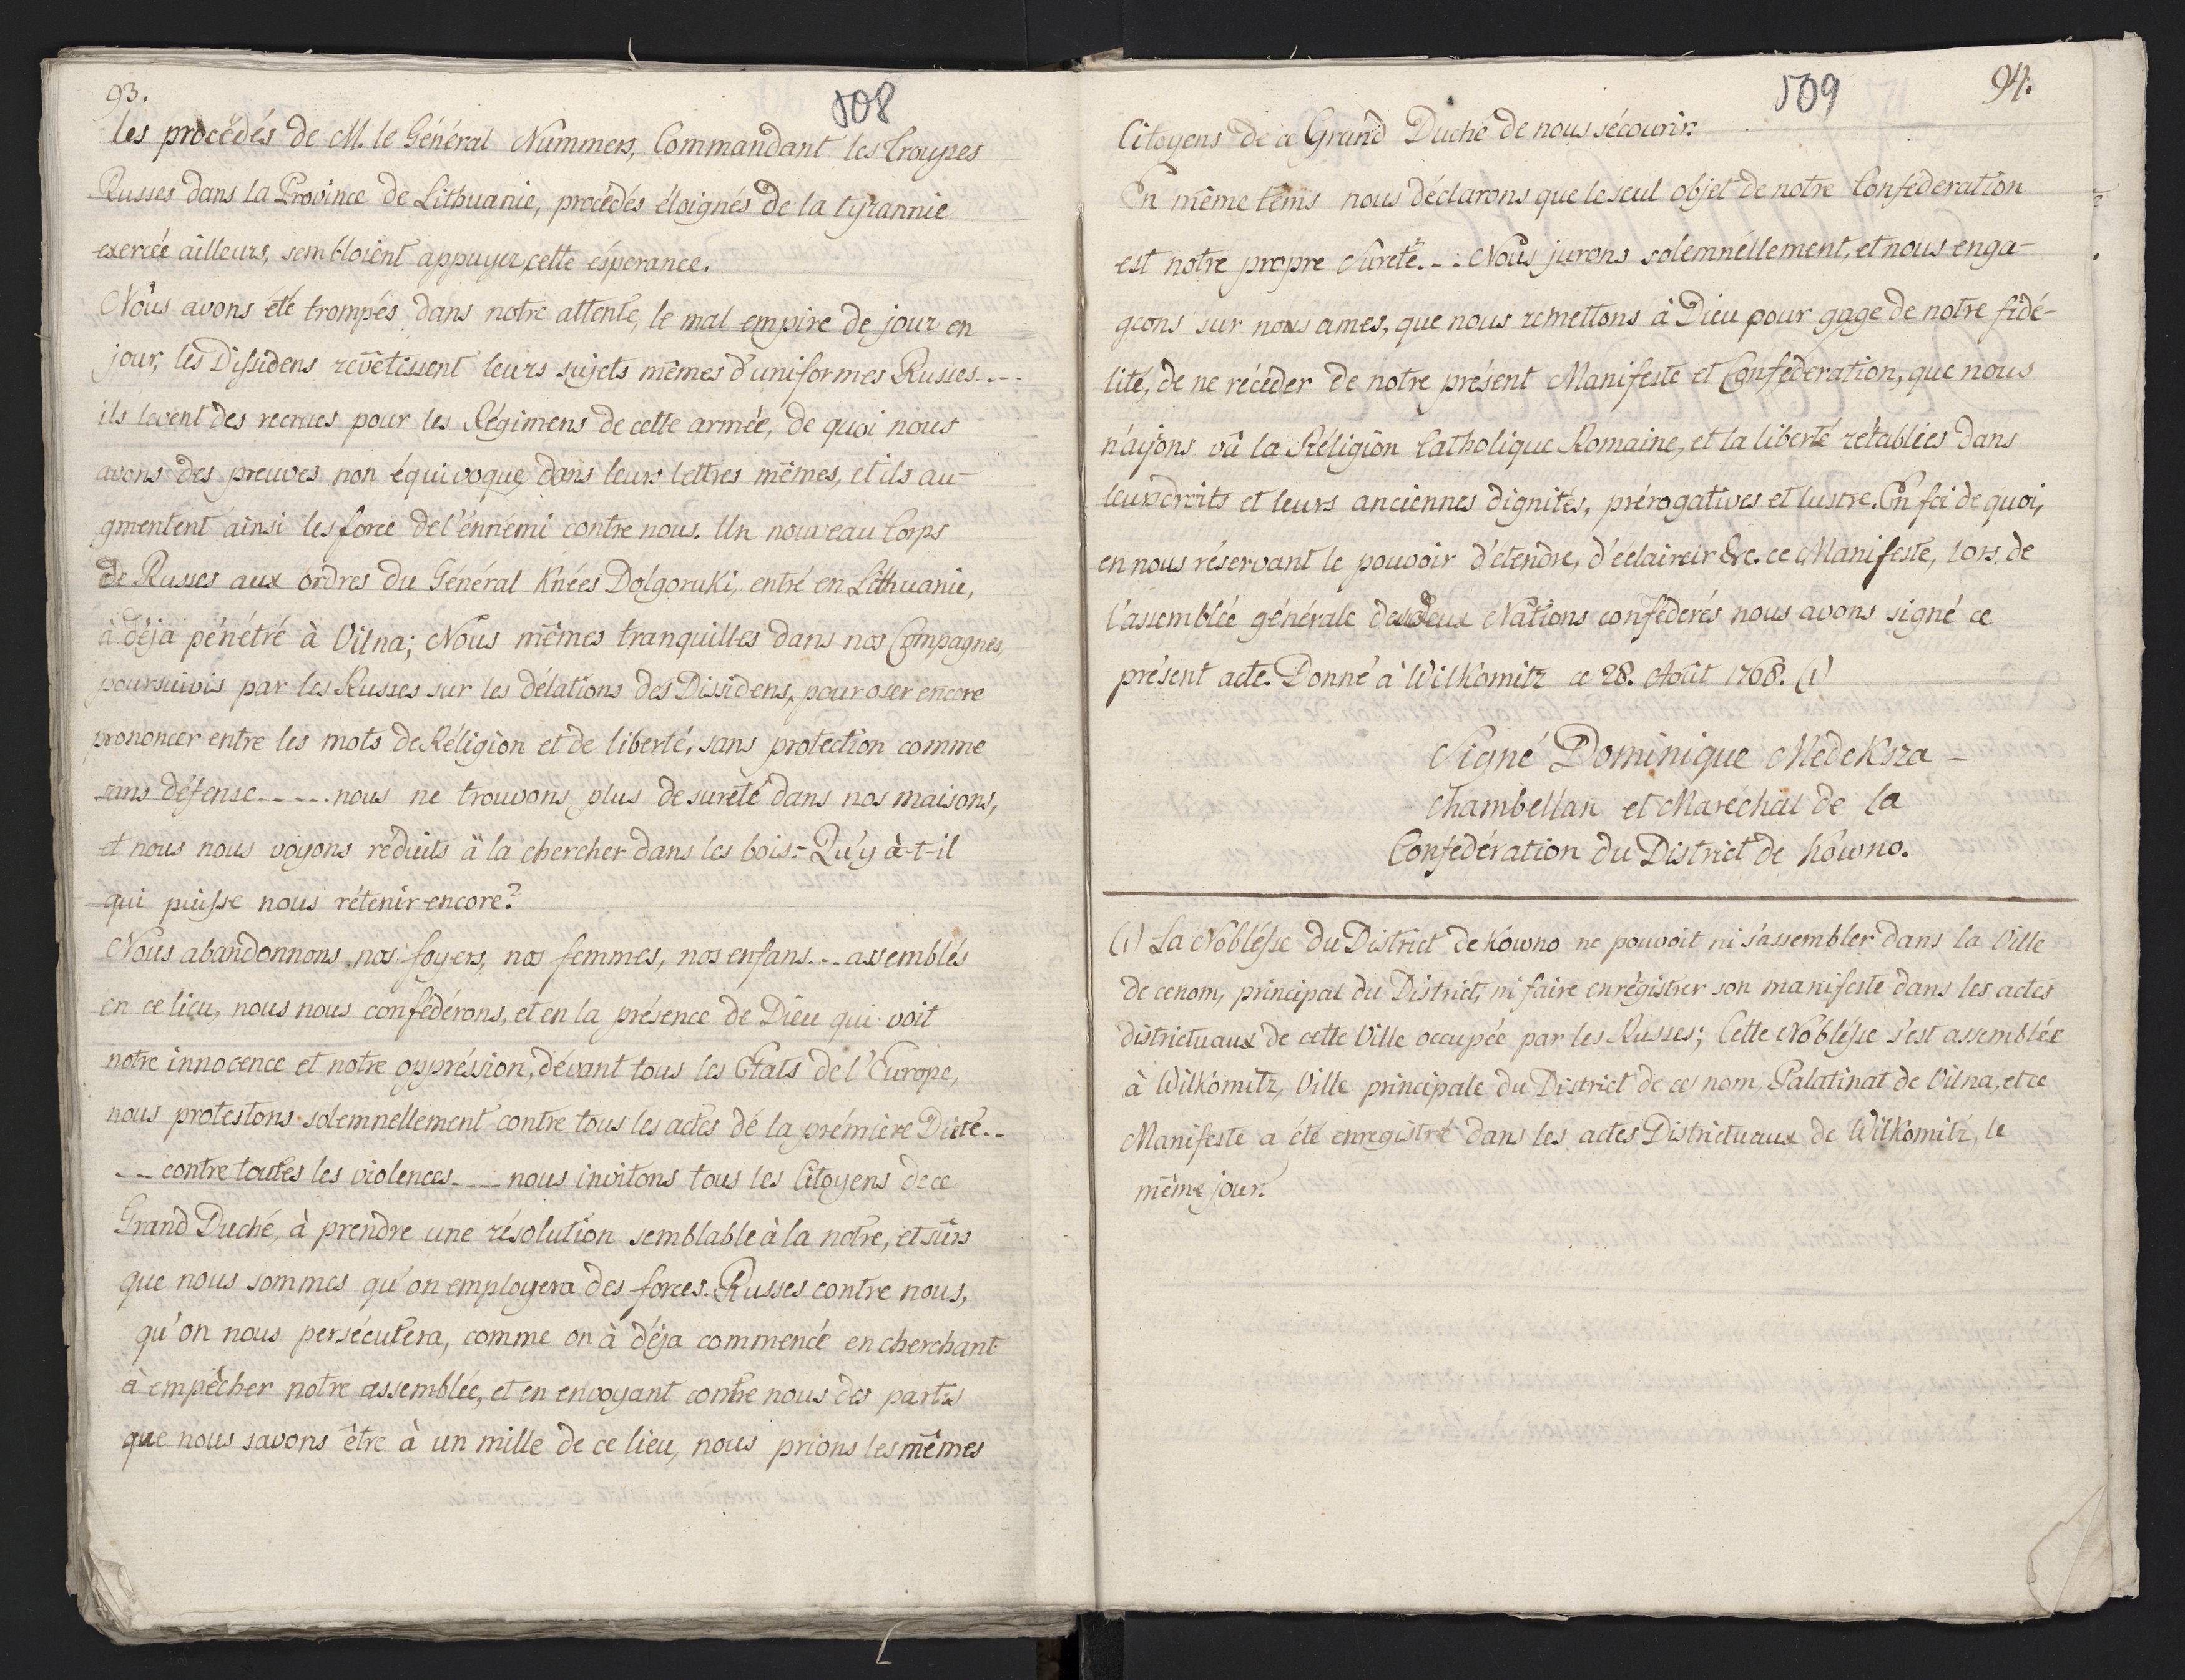 93.
508
les procédés de M. le Général Nummers, Commandant les Troupes
Russes dans la Province de Lithuanie, procédés éloignés de la tyrannie
exercée ailleurs, sembloient appuyer cette ésperance.
Nous avons été trompés dans notre attente, le mal empire de jour en
jour, les Dissidens revêtissent leurs sujets mêmes d'uniformes Russes....
ils levent des recrues pour les Régimens de cette armée, de quoi nous
avons des preuves non équivoques dans leurs lettres mêmes, et ils au-
gmentent ainsi les force de l'énnemi contre nous. Un nouveau Corps
de Russes aux ordres du Général Knées Dolgoruki, entré en Lithuanie,
à déja pénétré à Vilna; Nous mêmes tranquilles dans nos Compagnes,
poursuivis par les Russes sur les délations des Dissidens, pour oser encore
prononcer entre les mots de Réligion et de liberté, sans protection comme
sans défense----- nous ne trouvons plus de sureté dans nos maisons,
et nous nous voyons réduits à la chercher dans les bois.- Qu'y à-t-il
qui puisse nous rétenir encore?
Nous abandonnons nos foyers, nos femmes, nos enfans... assemblés
en ce lieu, nous nous confédérons, et en la présence de Dieu qui voit
notre innocence et notre oppréssion, dévant tous les Etats de l'Europe,
nous protestons solemnellement contre tous les actes dé la prémiere Diéte..
-- contre toutes les violences.... nous invitons tous les Citoyens de ce
Grand Duché, à prendre une résolution semblable à la notre, et sûrs
que nous sommes qu'on employera des forces Russes contre nous,
qu'on nous persécutera, comme on à déja commencé en cherchant
à empêcher notre assemblée, et en envoyant contre nous des partis
que nous savons être à un mille de ce lieu, nous prions les mêmes
509
94.
Citoyens de ce Grand Duché de nous sécourir.
En même têms nous déclarons que le seul objet de notre Conféderation
est notre propre sureté.--. Nous jurons solemnéllement, et nous enga-
geons sur nous ames, que nous remettons à Dieu pour gage de notre fidé-
lité, de ne récéder de notre présent Manifeste et Conféderation, que nous
n'ayons vû la Réligion Catholique Romaine, et la liberté retablies dans
leurs droits et leurs anciennes dignités, prérogatives et lustre. En foi de quoi,
en nous réservant le pouvoir d'étendre, d'éclaircir &c. ce Manifeste, lors de
l'assemblée générale des deux Nations conféderés nous avons signé ce
présent acte. Donné à Wilkomitz ce 28. Août 1768. (1)
Signé Dominique Medeksza -
Chambellan et Maréchal de la
Confedération du District de Kowno.
(1) La Nobléße du District de Kowno ne pouvoit ni s'assembler dans la Ville
de ce nom, principal du District, ni faire enrégistrer son manifeste dans les actes
districtuaux de cette Ville occupée par les Russes; Cette Nobléße s'est assemblée
à Wilkomitz, Ville principale du District de ce nom, Palatinat de Vilna, et ce
Manifeste a été enregistré dans les actes Districtuaux de Wilkomitz, le
même jour.